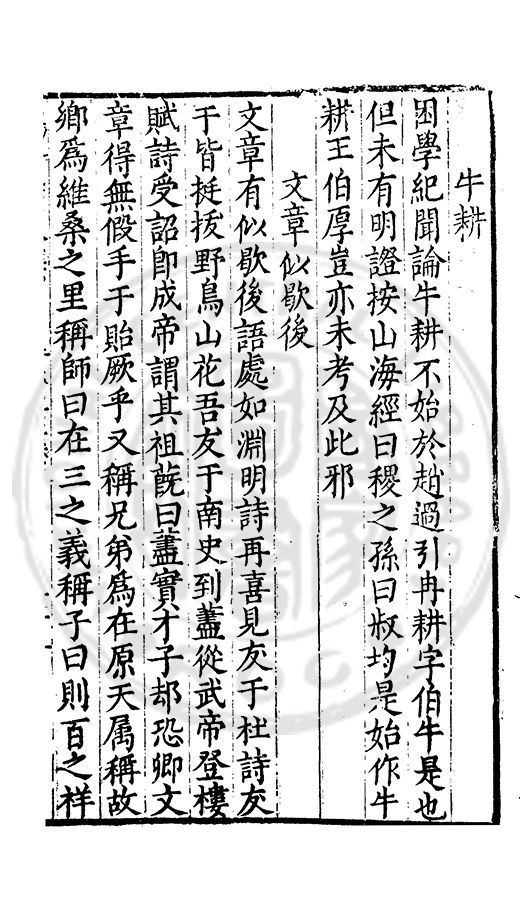 牛耕
困學紀聞論牛耕不始於趙過引冉耕字伯牛是也
但未有明證按山海經曰稷之孫曰叔均是始作牛
耕王伯厚豈亦未考及此邪
文章似歇後
文章有似歇後語處如淵明詩再喜見友于杜詩友
于皆挺拔野鳥山花吾友于南史到藎從武帝登樓
賦詩受詔卽成帝謂其祖漑曰藎實才子却恐卿文
章得無假手于貽厥乎又稱兄弟爲在原天属稱故
鄉爲維桑之里稱師曰在三之義稱子曰則百之祥